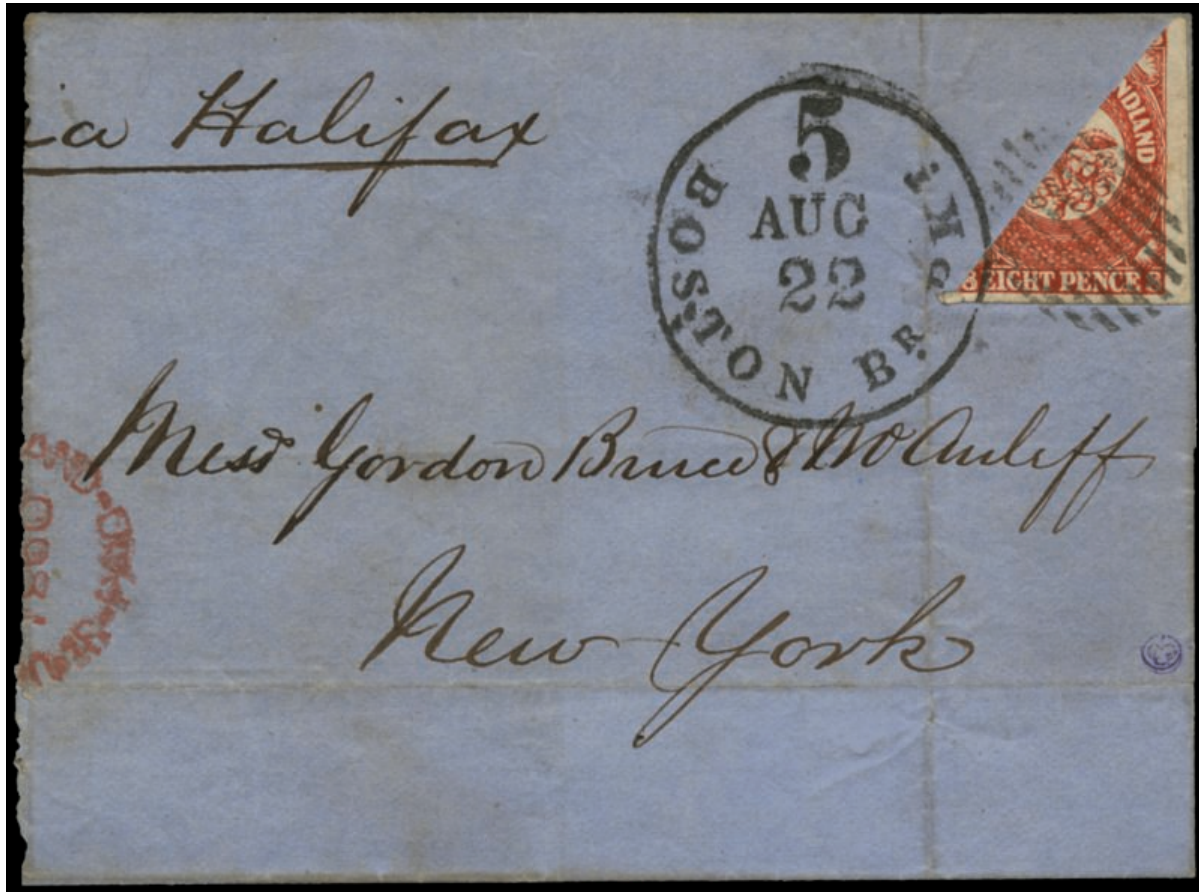 ia Halifax
5
AUG
22
BOSTON Br. PKT.
NDLAND
8 EIGHT PENCE 8
Messrs Gordon Bruce & McAuliff
New York